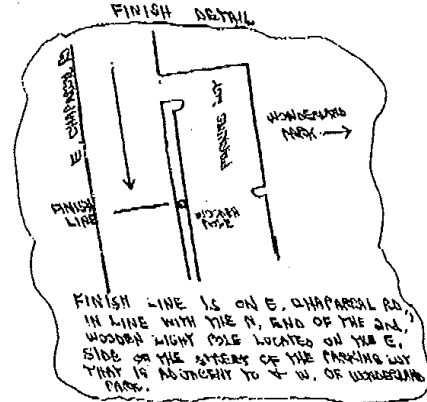 FINISH DETAIL
E. CHAPARRAL RD.
PARKING LOT
WONDERLAND
PARK →
FINISH
LINE
WOODEN
POLE
FINISH LINE IS ON E. CHAPARRAL RD.,
IN LINE WITH THE N. END OF THE 2nd,
WOODEN LIGHT POLE LOCATED ON THE E.
SIDE OF THE STREET OF THE PARKING LOT
THAT IS ADJACENT TO & W. OF WONDERLAND
PARK.